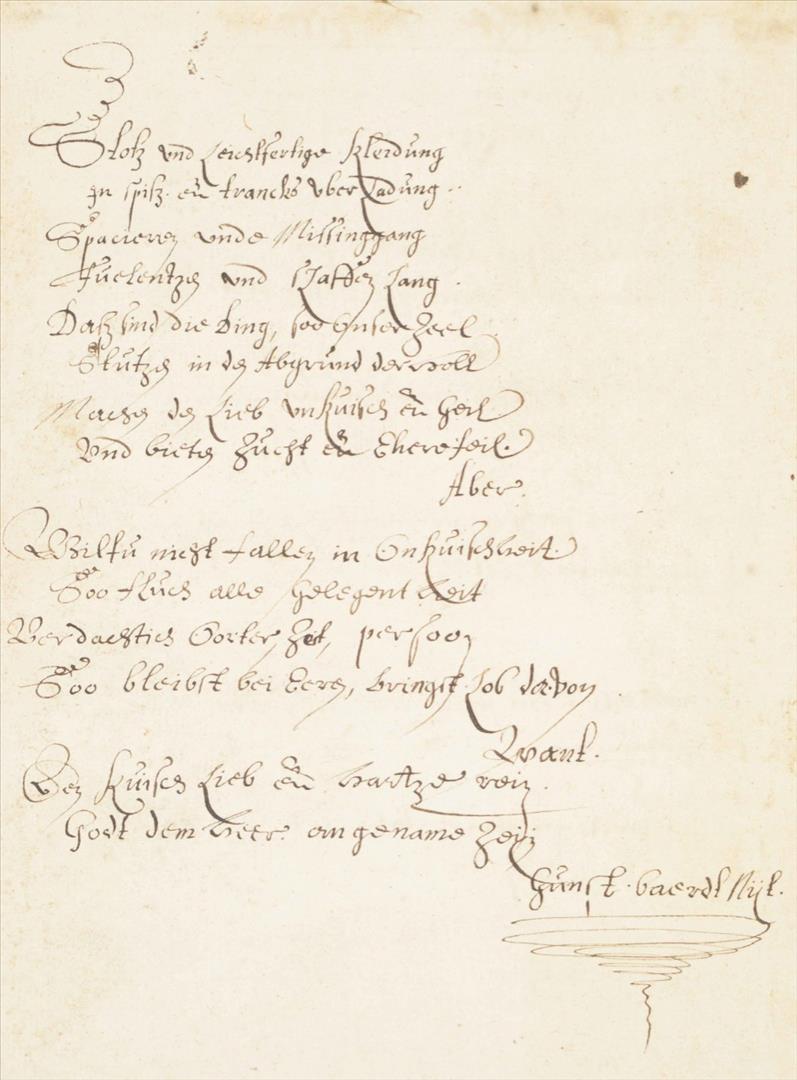 Stoltz vnd Leichtfertige kleidung
In spisz en trancks vber Ladung.
Spacieren unde Missinggang
Fuelentzen und slaffen Lang.
Dasz sind die Ding, soo Unser Zeel
Stutzen in den Abgrund der woll
Machen den Lieb vnkuisch en geil
Vnd bieten Zucht en Ehere feil.
Aber.
Wiltu nicht fallen in Onkuischheit.
Soo fluch alle gelegentheit
Verdachtich Oorter, Zeit, persoon
Soo bleibst bei Eeren, bringst Lob davon
Want.
Een kuisch Lieb en hartze rein.
Godt dem heer angename Zein
Gunst baerdt Nijt.